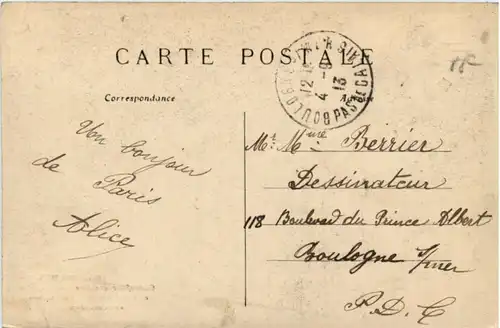 CARTE POSTALE
Correspondance
Von bonjour
de Paris
Alice
BOULOGNE S MER
PAS DE CALAIS
12
4 - 9
13
Mr. Mme Berrier
Dessinateur
118 Boulevard du Prince Albert
Boulogne s/mer
P. D. C